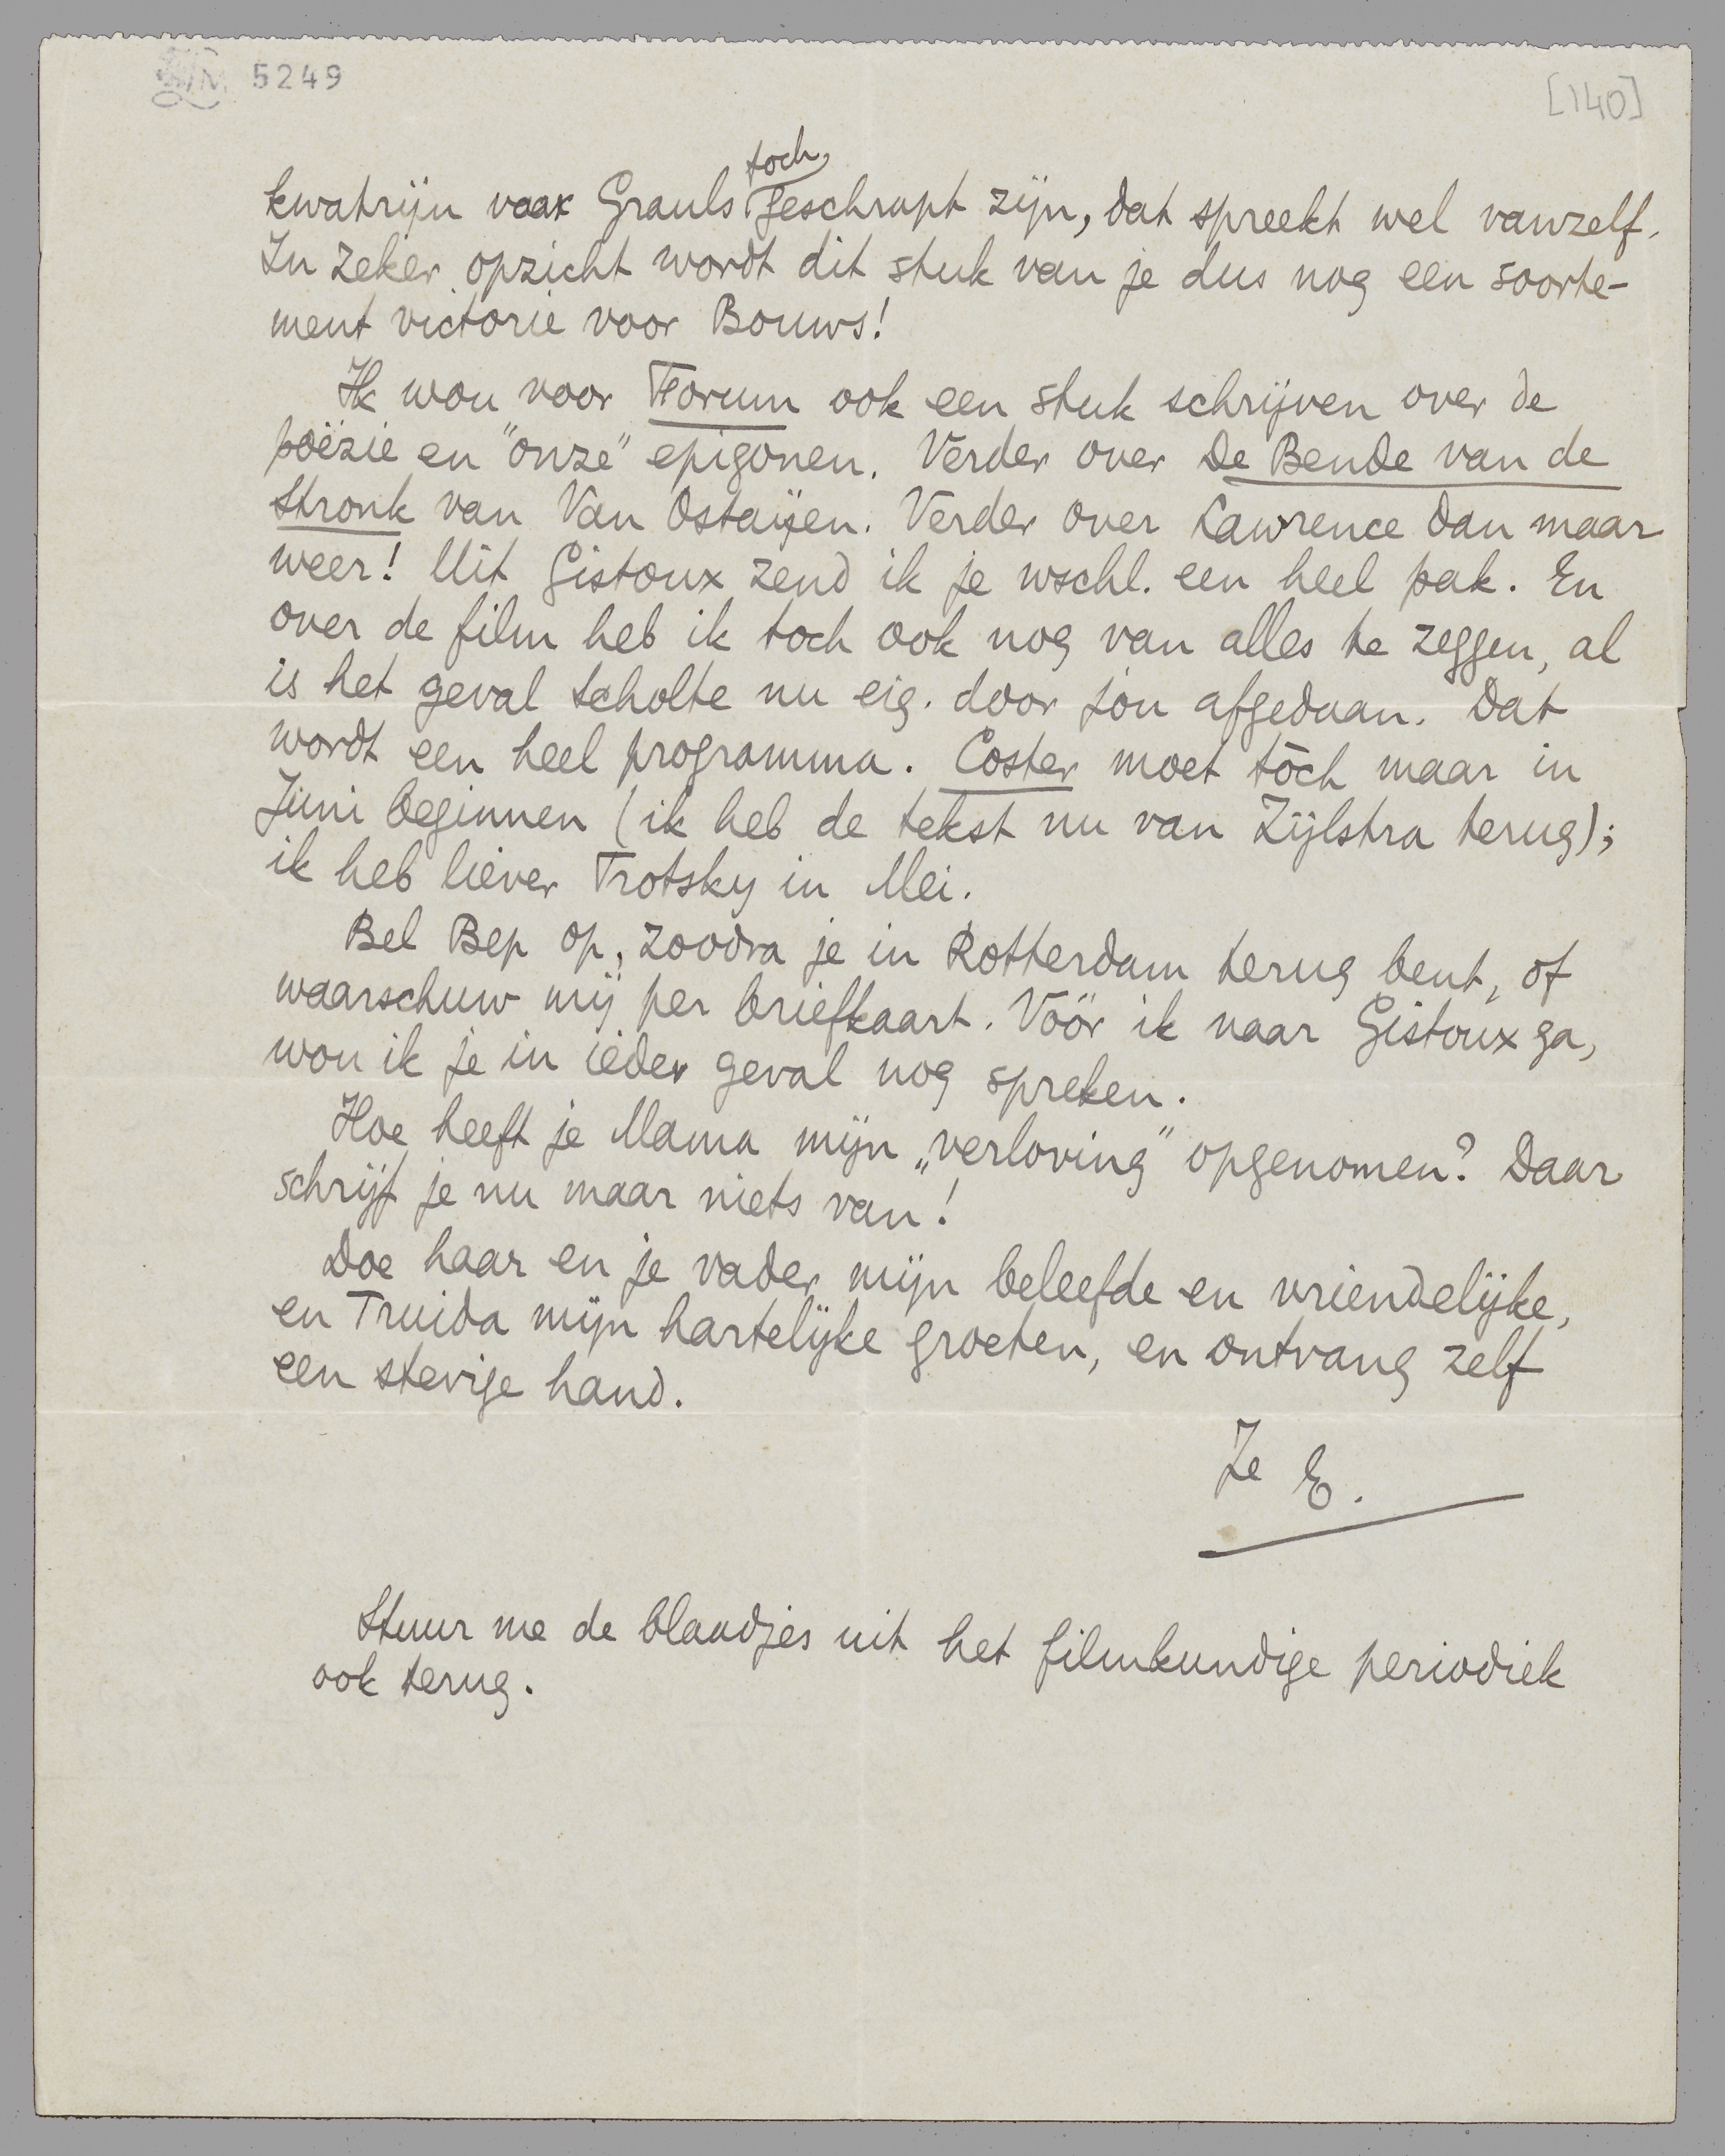 5249
[140]
kwatrijn vaak Grauls toch geschrapt zijn, dat spreekt wel vanzelf.
In zeker opzicht wordt dit stuk van je dus nog een soorte-
ment victorie voor Bouws!
Ik wou voor Forum ook een stuk schrijven over de
poëzie en "onze" epigonen. Verder over De Bende van de
Stronk van Van Ostaijen. Verder over Lawrence dan maar
weer! Uit Gistoux zend ik je wschl. een heel pak. En
over de film heb ik toch ook nog van alles te zeggen, al
is het geval Scholte nu eig. door jou afgedaan. Dat
wordt een heel programma. Coster moet tòch maar in
Juni beginnen (ik heb de tekst nu van Zijlstra terug);
ik heb liever Trotsky in Mei.
Bel Bep op, zoodra je in Rotterdam terug bent, of
waarschuw mij per briefkaart. Vóór ik naar Gistoux ga,
wou ik je in ieder geval nog spreken.
Hoe heeft je Mama mijn „verloving" opgenomen? Daar
schrijf je nu maar niets van!
Doe haar en je vader mijn beleefde en vriendelijke,
en Truida mijn hartelijke groeten, en ontvang zelf
een stevige hand.
Je E.
Stuur me de blaadjes uit het filmkundige periodiek
ook terug.